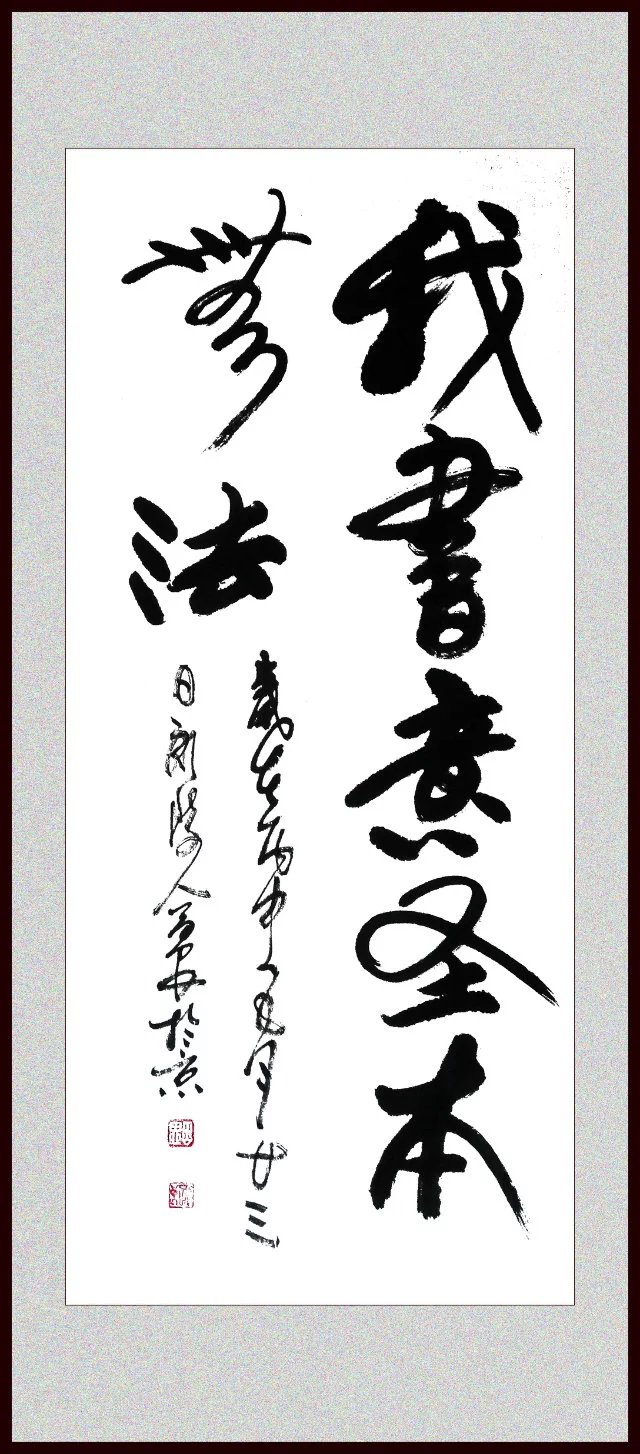 我書意圣本
無法
歲在丙申月廿三
日人於京